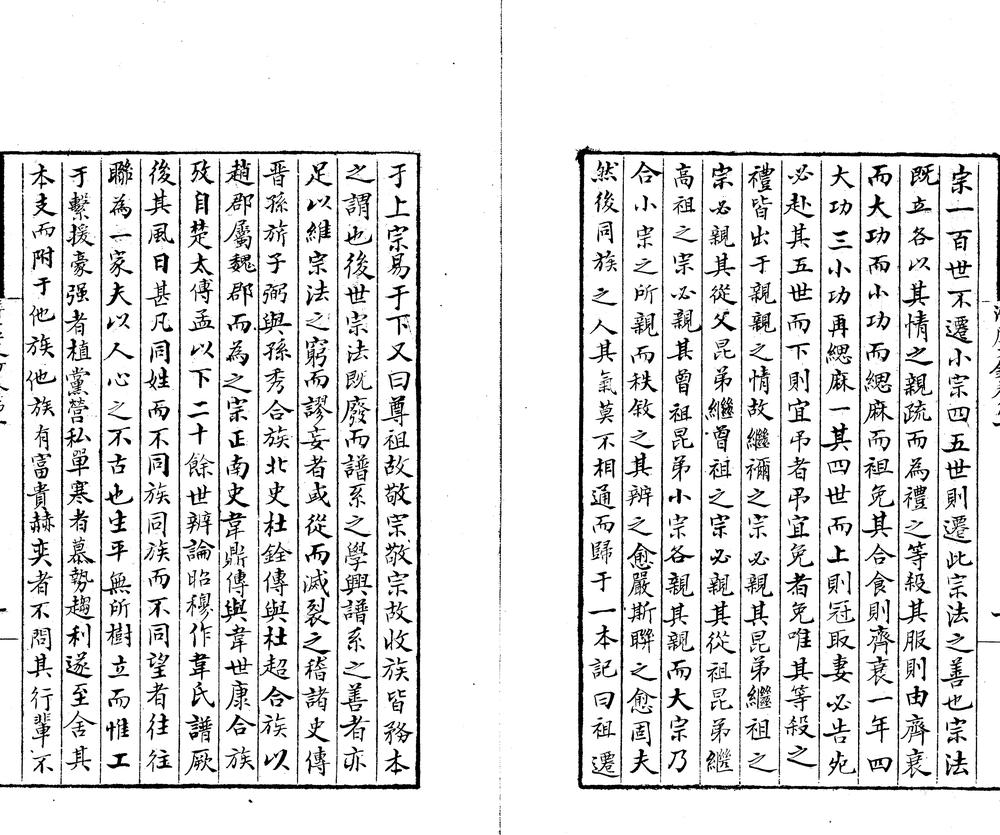 宗一百世不遷小宗四五世則遷此宗法之善也宗法
既立各以其情之親疏而為禮之等殺其服則由齊衰
而大功而小功而緦麻而袒免其合食則齊衰一年四
大功三小功再緦麻一其四世而上則冠取妻必告死
必赴其五世而下則宜弔者弔宜免者免唯其等殺之
禮皆出于親親之情故繼禰之宗必親其昆弟繼祖之
宗必親其從父昆弟繼曾祖之宗必親其從祖昆弟繼
高祖之宗必親其曾祖昆弟小宗各親其親而大宗乃
合小宗之所親而秩敘之其辨之愈嚴斯聯之愈固夫
然後同族之人其氣莫不相通而歸于一本記曰祖遷
于上宗易于下又曰尊祖故敬宗敬宗故收族皆務本
之謂也後世宗法既廢而譜系之學興譜系之善者亦
足以維宗法之窮而謬妄者或從而滅裂之稽諸史傳
晋孫旂子弼與孫秀合族北史杜銓傳與杜超合族以
趙郡屬魏郡而為之宗正南史韋鼎傳與韋世康合族
攷自楚太傅孟以下二十餘世辨論昭穆作韋氏譜厥
後其風日甚凡同姓而不同族同族而不同望者往往
聯為一家夫以人心之不古也生平無所樹立而惟工
于繫援豪强者植黨營私單寒者慕勢趨利遂至舍其
本支而附于他族他族有富貴赫奕者不問其行輩不